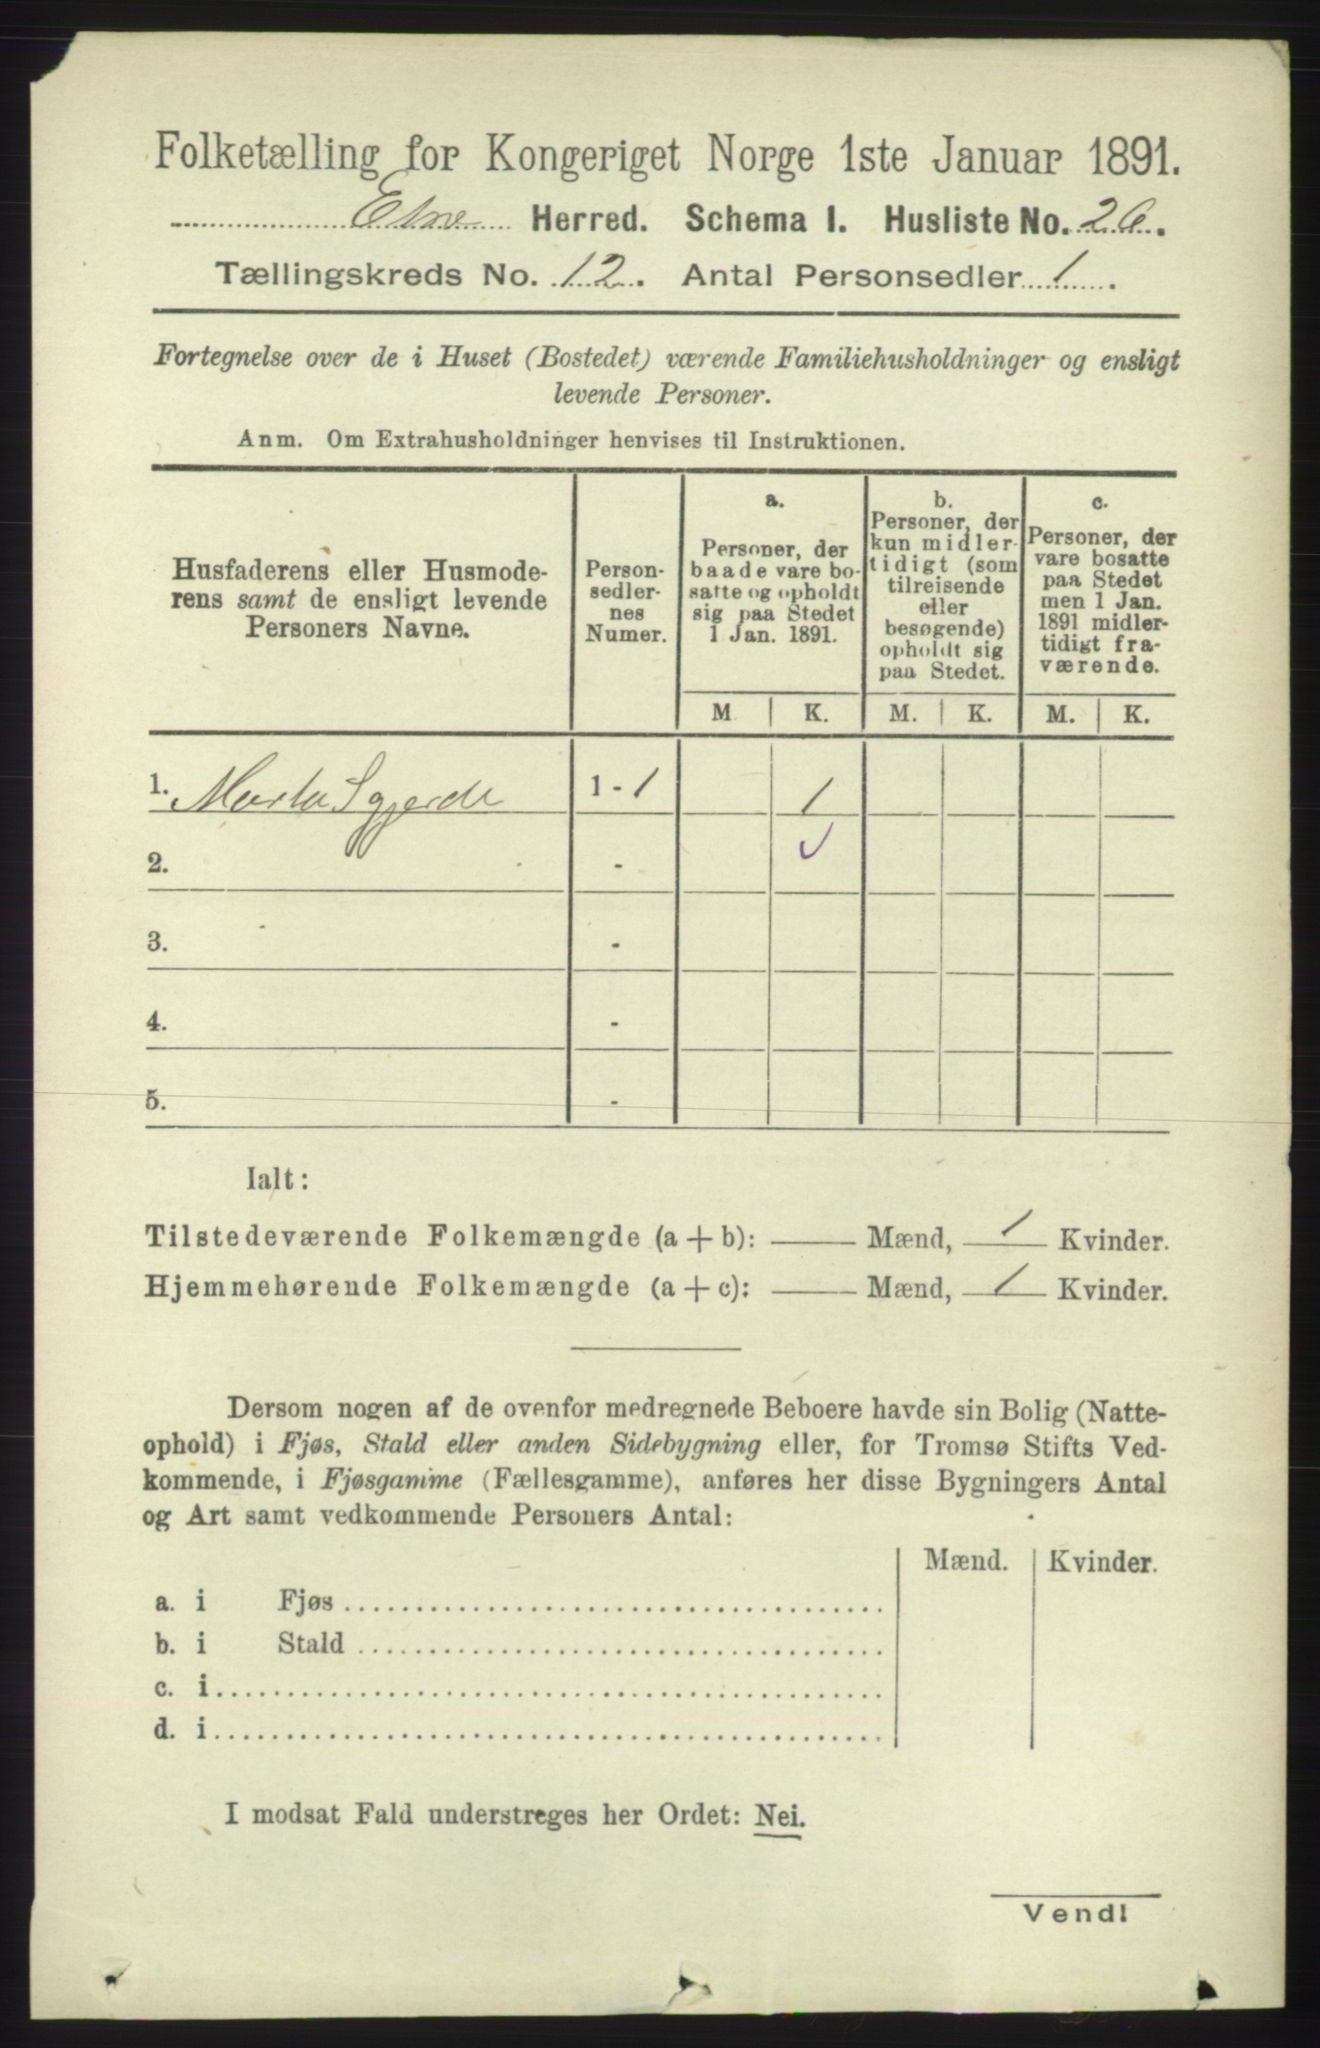 Folketælling for Kongeriget Norge 1ste Januar 1891.
Etne Herred. Schema I. Husliste No. 26.
Tællingskreds No. 12. Antal Personsedler 1.
Fortegnelse over de i Huset (Bostedet) værende Familiehusholdninger og ensligt
levende Personer.
Anm. Om Extrahusholdninger henvises til Instruktionen.
Husfaderens eller Husmode-
rens samt de ensligt levende
Personers Navne.
Person-
sedler-
nes
Numer.
a.
Personer, der
baade vare bo-
satte og opholdt
sig paa Stedet
1 Jan. 1891.
b.
Personer, der
kun midler-
tidigt (som
tilreisende
eller
besøgende)
opholdt sig
paa Stedet.
c.
Personer, der
vare bosatte
paa Stedet
men 1 Jan.
1891 midler-
tidigt fra-
værende.
M. K. M. K. M. K.
1. Marta Sgjerde 1 - 1 1
2. -
3. -
4. -
5. -
Ialt:
Tilstedeværende Folkemængde (a + b): Mænd, 1 Kvinder.
Hjemmehørende Folkemængde (a + c): Mænd, 1 Kvinder.
Dersom nogen af de ovenfor medregnede Beboere havde sin Bolig (Natte-
ophold) i Fjøs, Stald eller anden Sidebygning eller, for Tromsø Stifts Ved-
kommende, i Fjøsgamme (Fællesgamme), anføres her disse Bygningers Antal
og Art samt vedkommende Personers Antal:
Mænd. Kvinder.
a. i Fjøs
b. i Stald
c. i
d. i
I modsat Fald understreges her Ordet: Nei.
Vend!